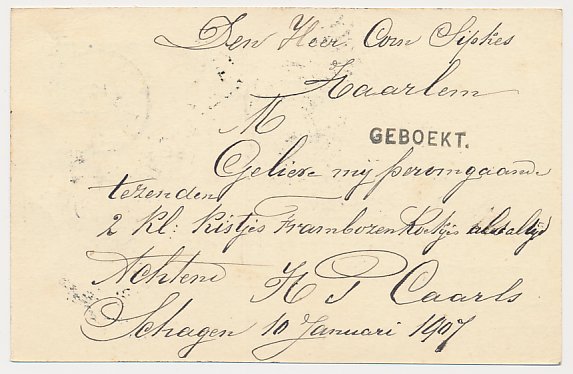 Den Heer Corn Sipkes
Haarlem
M
GEBOEKT.
Gelieve mij peromgaande
tezenden
2 kl: kistjes Frambozen Koekjes als altijd
Achtend
H P Caarls
Schagen 10 Januari 1907